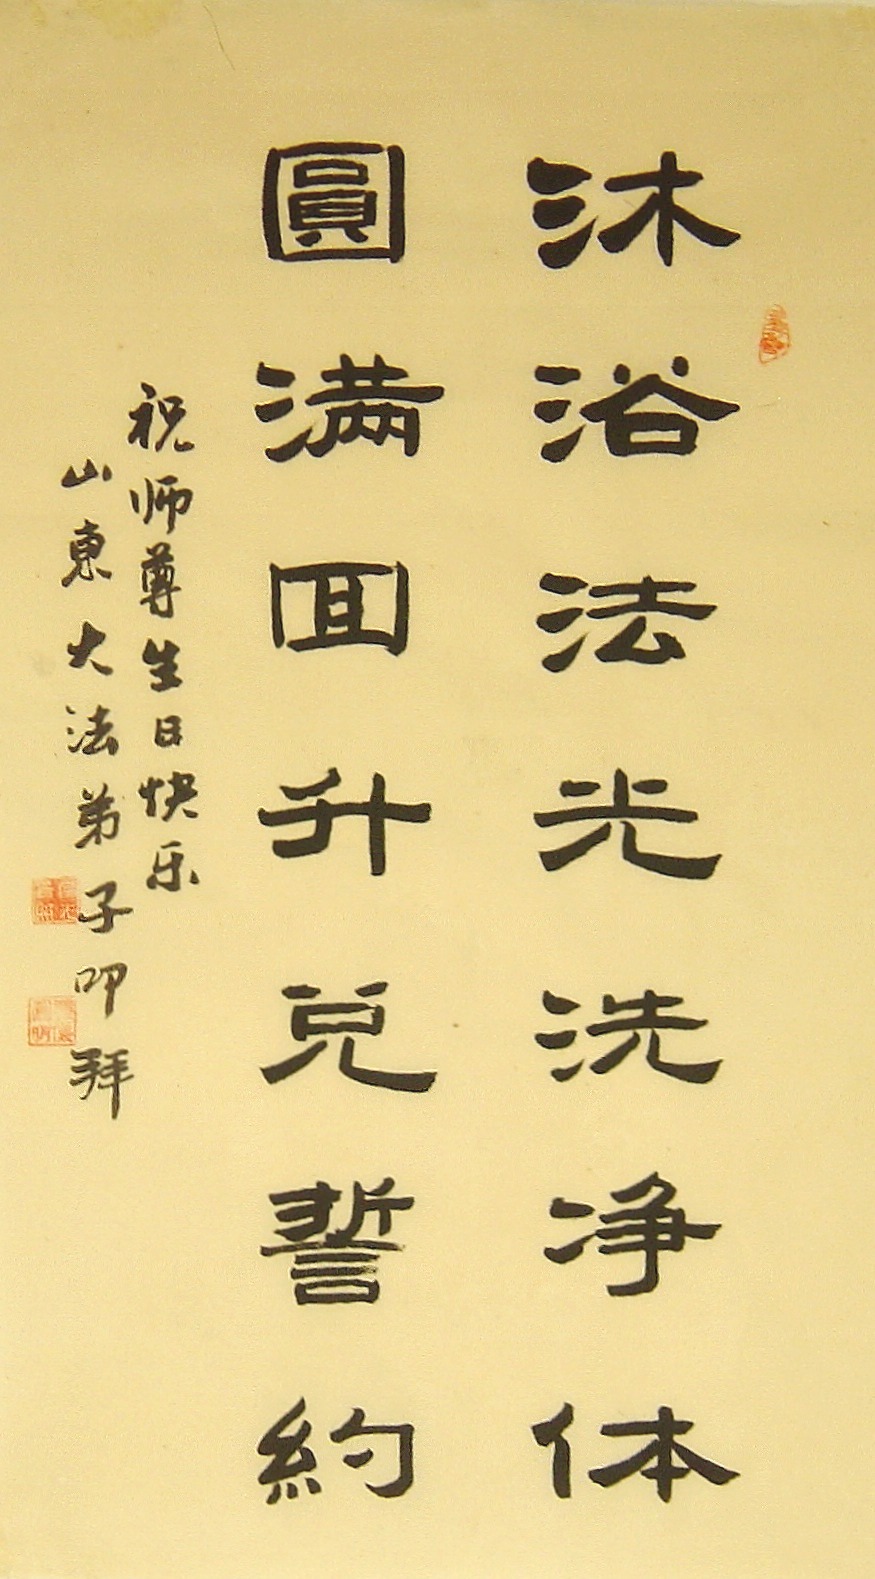 沐浴法光洗净体
圓满囬升兑誓約
祝师尊生日快乐
山東大法弟子叩拜